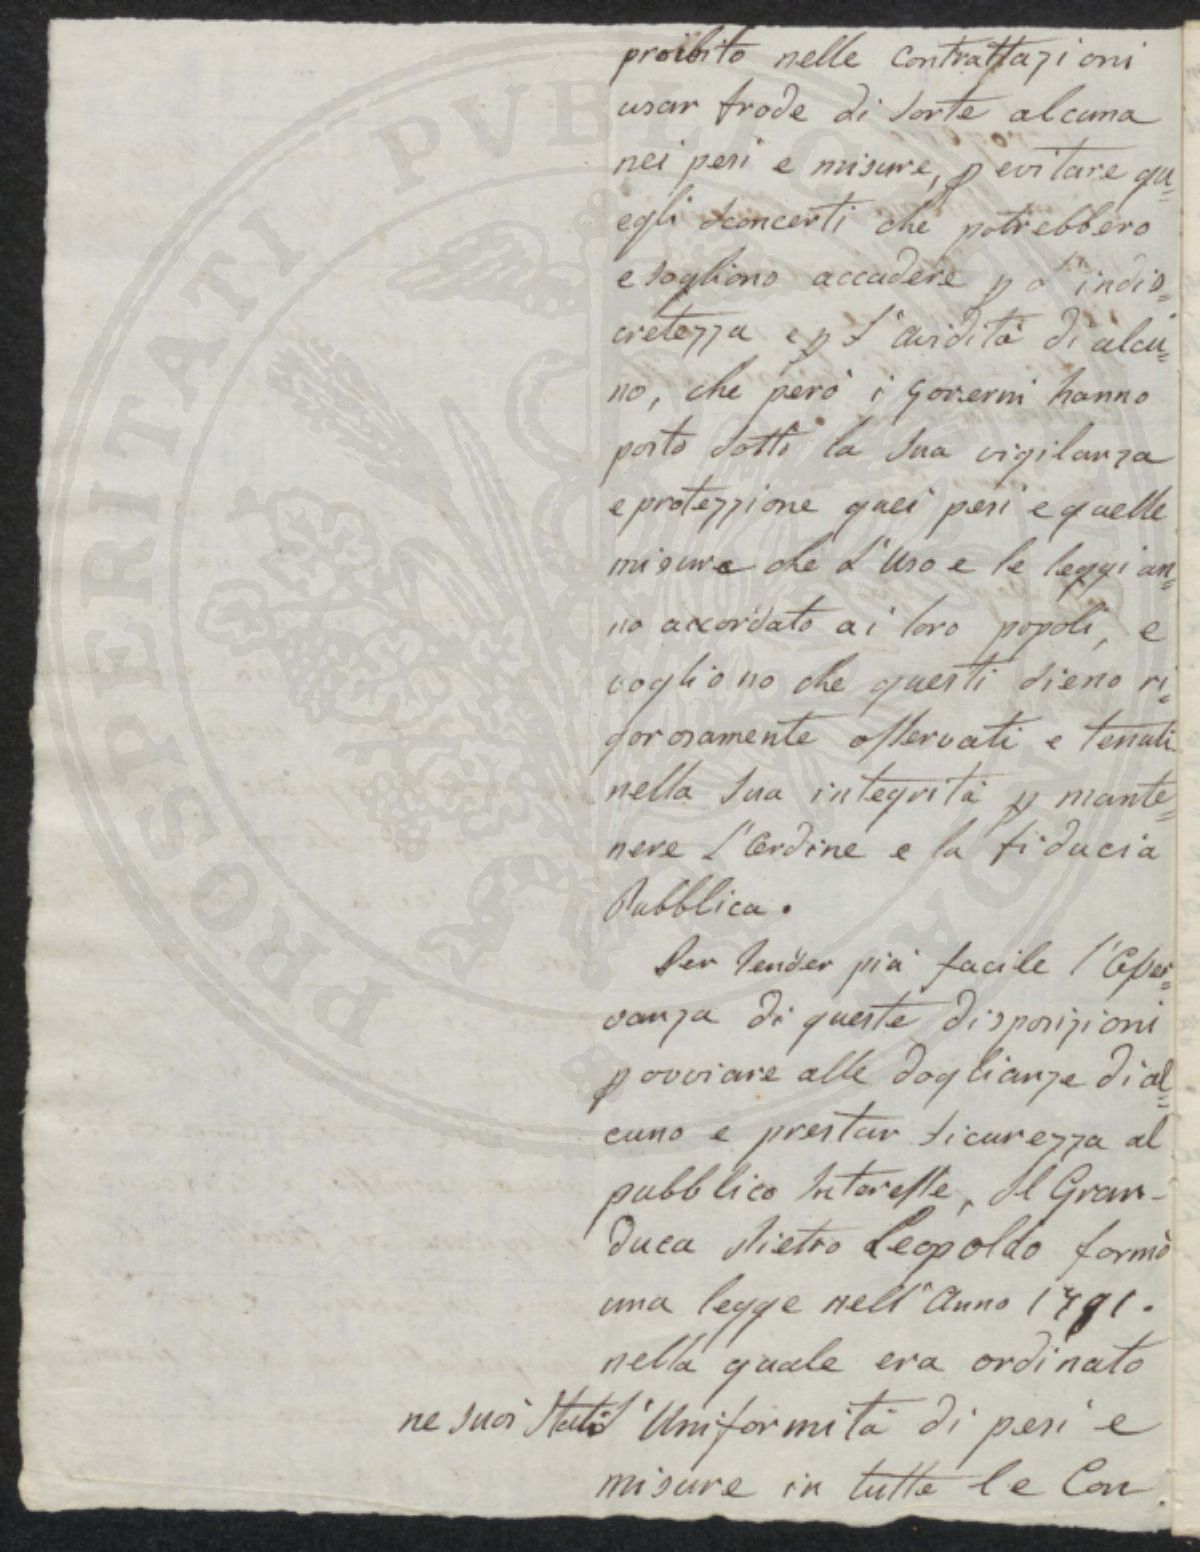 PROSPERITATI PVBLICAE
proibito nelle Contrattazioni
usar frode di sorte alcuna
nei pesi e misure, p evitare qu=
egli sconcerti che potrebbero
e sogliono accadere p l'indis=
cretezza e p l'avidità di alcu=
no, che però i Governi hanno
posto sotto la sua vigilanza
e protezzione quei pesi e quelle
misure che l'Uso e le leggi an=
no accordato ai loro popoli, e
vogliono che questi sieno ri=
gorosamente osservati e tenuti
nella sua integrità p mante=
nere l'Ordine e la fiducia
Pubblica.
Per render più facile l'Osser=
vanza di queste disposizioni
p ovviare alle doglianze di al=
cuno e prestar sicurezza al
pubblico Interesse, Il Gran-
duca Pietro Leopoldo formò
una legge nell'Anno 1781.
nella quale era ordinato
ne suoi Stati l'Uniformità di pesi e
misure in tutte le Con